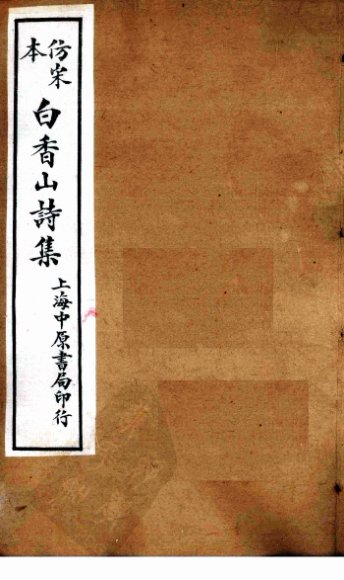 仿宋本
白香山詩集
上海中原書局印行